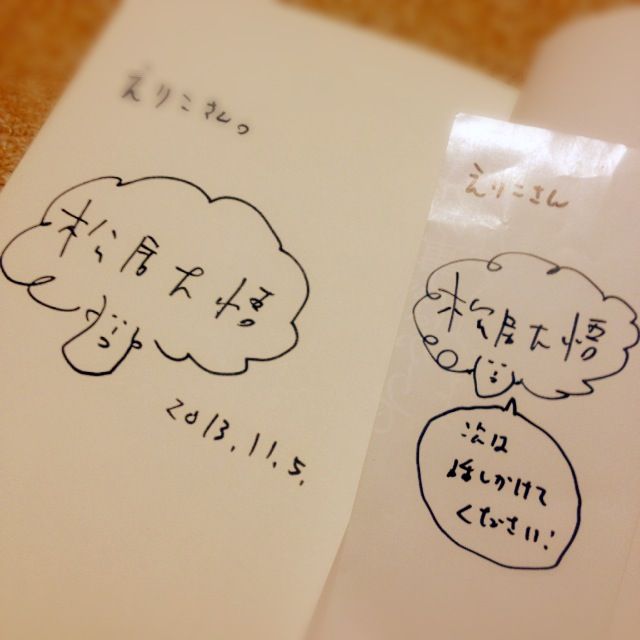 えりこさんっ
松居大悟
2013.11.5.
えりこさん
松居大悟
次は
話しかけて
ください!